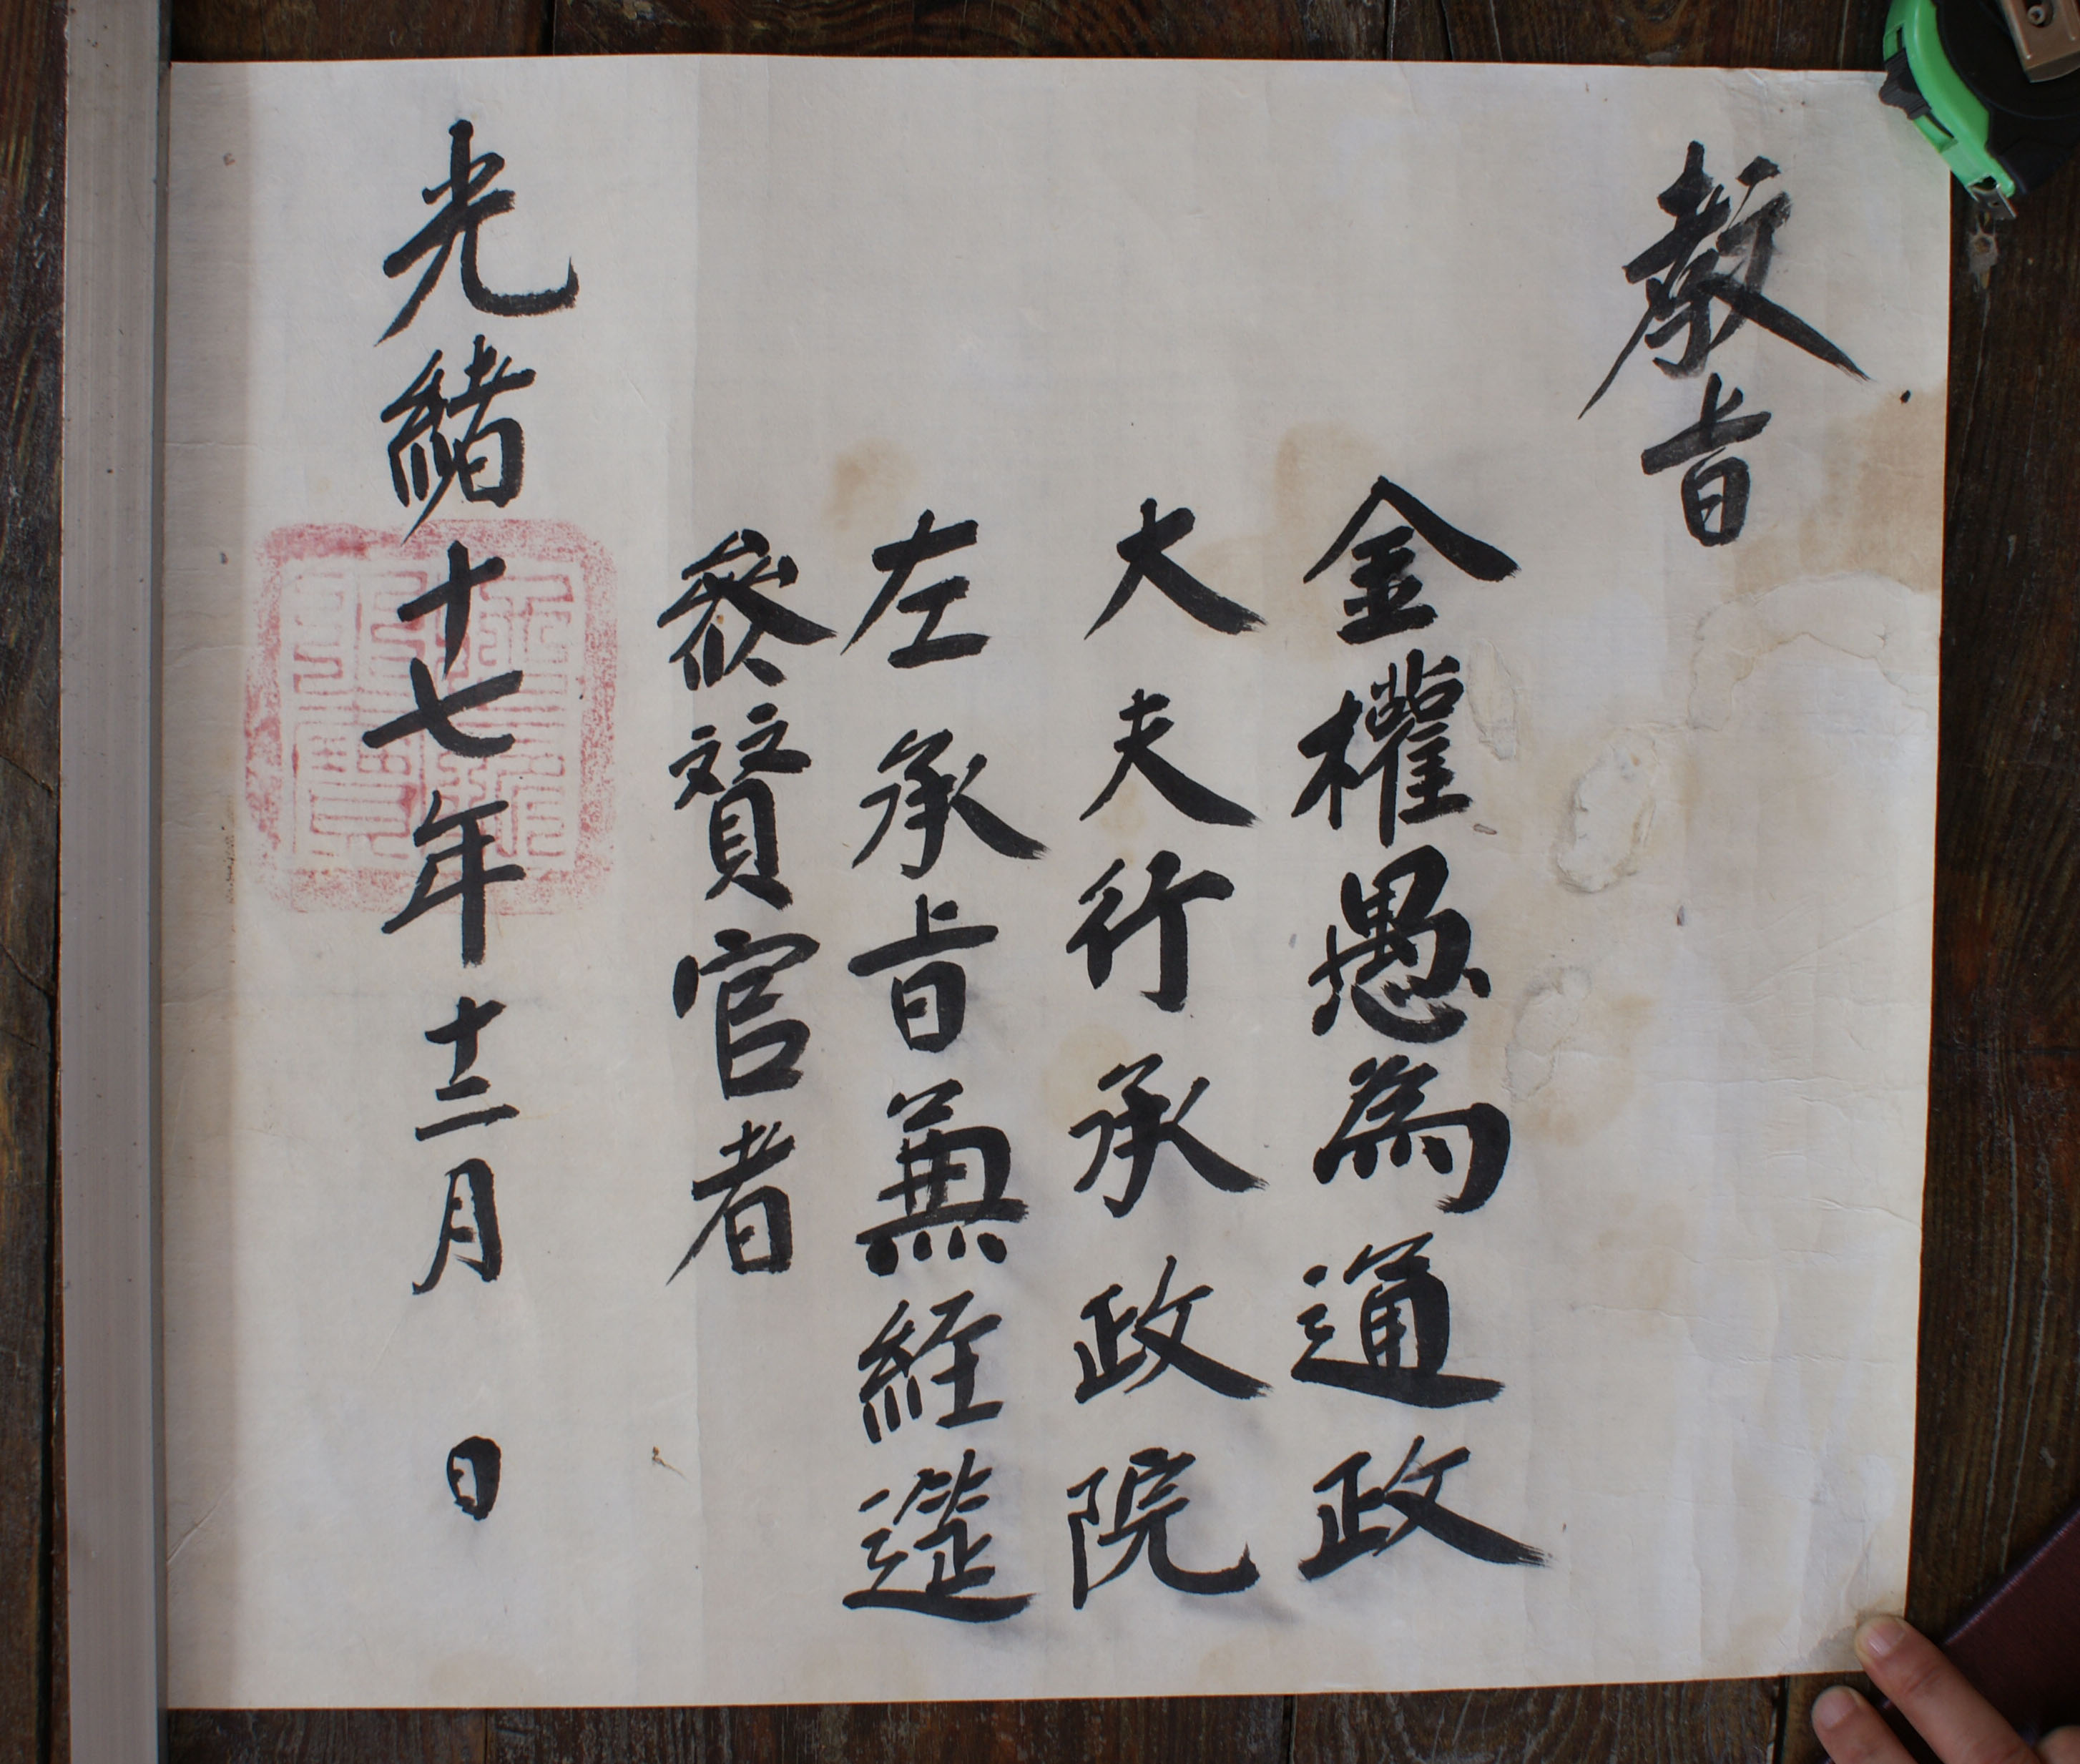 教旨
金權愚為通政
大夫行承政院
左承旨兼経筵
參贊官者
光緒十七年十二月 日